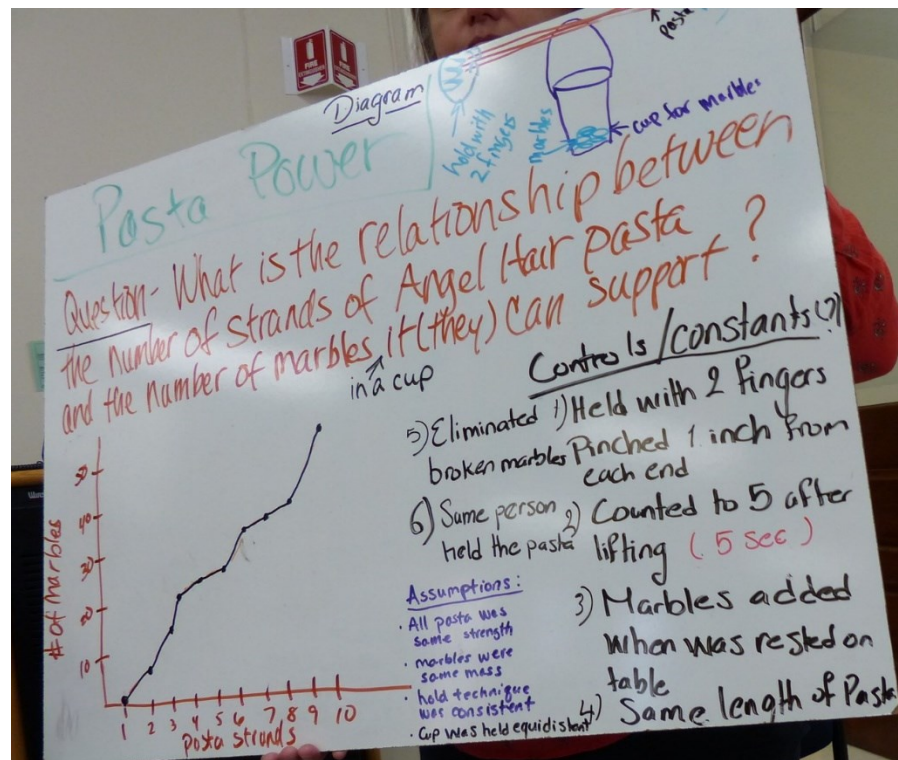 FIRE
FIRE
Diagram
Pasta Power
hold with
2 fingers
marbles
cup for marbles
pasta
Question- What is the relationship between
the number of strands of Angel Hair pasta
and the number of marbles it (they) can support?
in a cup
# of Marbles
50
40
30
20
10
1 2 3 4 5 6 7 8 9 10
pasta strands
Controls/constants(?)
1) Held with 2 fingers
Pinched 1 inch from
each end
2) Counted to 5 after
lifting (.5 sec)
3) Marbles added
when was rested on
table
4) Same length of Pasta
5) Eliminated
broken marbles
6) Same person
held the pasta
Assumptions:
· All pasta was
same strength
· marbles were
same mass
· hold technique
was consistent
· Cup was held equidistent